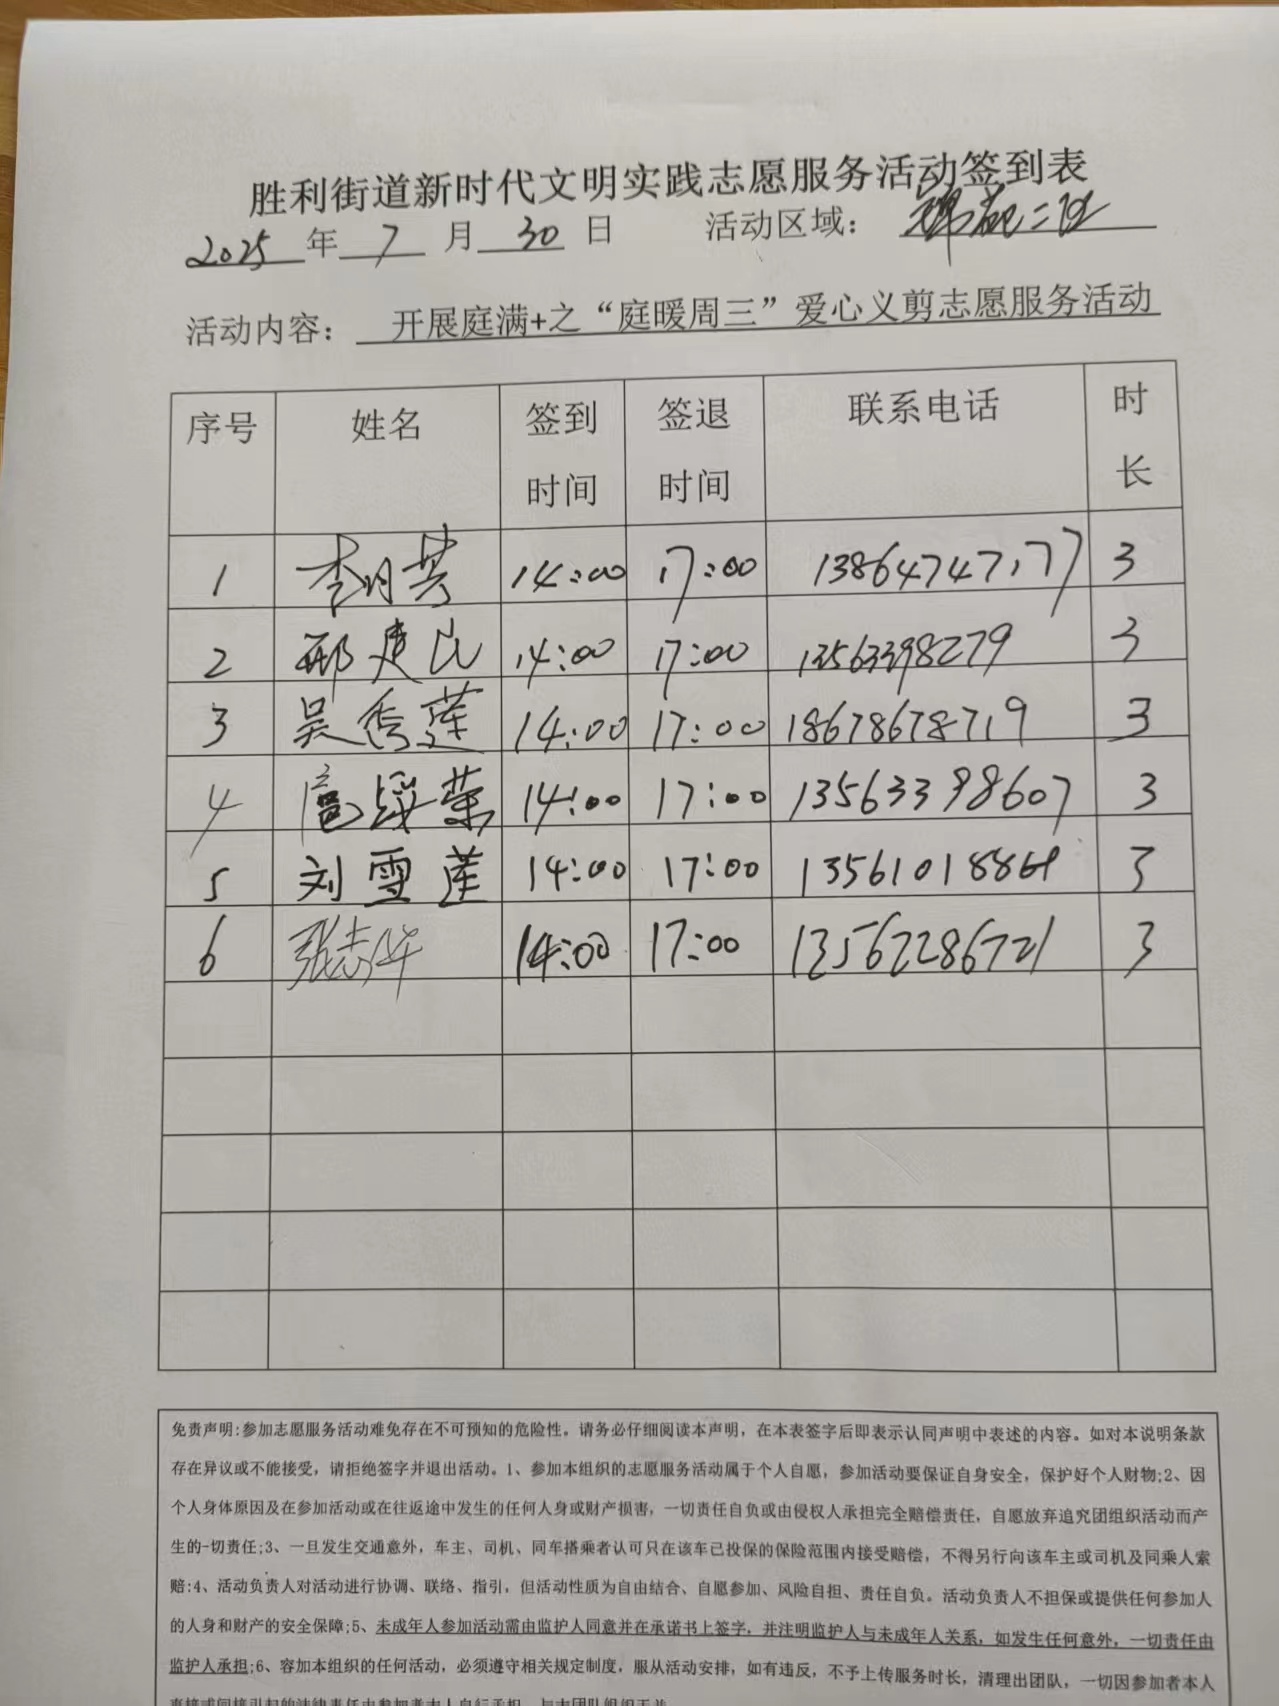 胜利街道新时代文明实践志愿服务活动签到表
2025年 7 月 30 日 活动区域：
活动内容： 开展庭满+之“庭暖周三”爱心义剪志愿服务活动
序号 姓名 签到时间 签退时间 联系电话 时长
1 李月芳 14:00 17:00 13864747177 3
2 邢建民 14:00 17:00 13563398279 3
3 吴秀莲 14:00 17:00 18678678719 3
4 14:00 17:00 13563398607 3
5 刘雪莲 14:00 17:00 3
6 14:00 17:00 13562286721 3
免责声明:参加志愿服务活动难免存在不可预知的危险性。请务必仔细阅读本声明，在本表签字后即表示认同声明中表述的内容。如对本说明条款
存在异议或不能接受，请拒绝签字并退出活动。1、参加本组织的志愿服务活动属于个人自愿，参加活动要保证自身安全，保护好个人财物;2、因
个人身体原因及在参加活动或在往返途中发生的任何人身或财产损害，一切责任自负或由侵权人承担完全赔偿责任，自愿放弃追究团组织活动而产
生的一切责任;3、一旦发生交通意外，车主、司机、同车搭乘者认可只在该车已投保的保险范围内接受赔偿，不得另行向该车主或司机及同乘人索
赔:4、活动负责人对活动进行协调、联络、指引，但活动性质为自由结合、自愿参加、风险自担、责任自负。活动负责人不担保或提供任何参加人
的人身和财产的安全保障;5、未成年人参加活动需由监护人同意并在承诺书上签字，并注明监护人与未成年人关系，如发生任何意外，一切责任由
监护人承担;6、容加本组织的任何活动，必须遵守相关规定制度，服从活动安排，如有违反，不予上传服务时长，清理出团队，一切因参加者本人